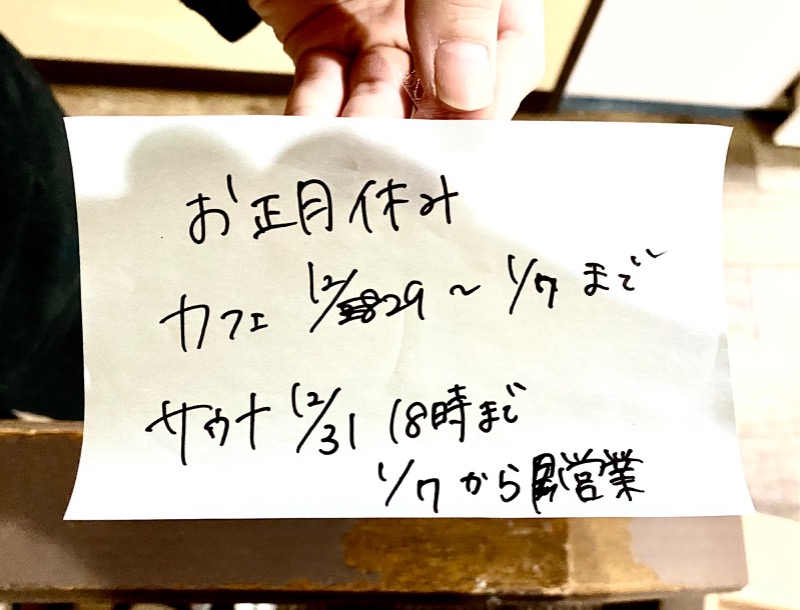 お正月休み
カフェ 12/29 〜 1/7 まで
サウナ 12/31 18時まで
1/7 から 営業